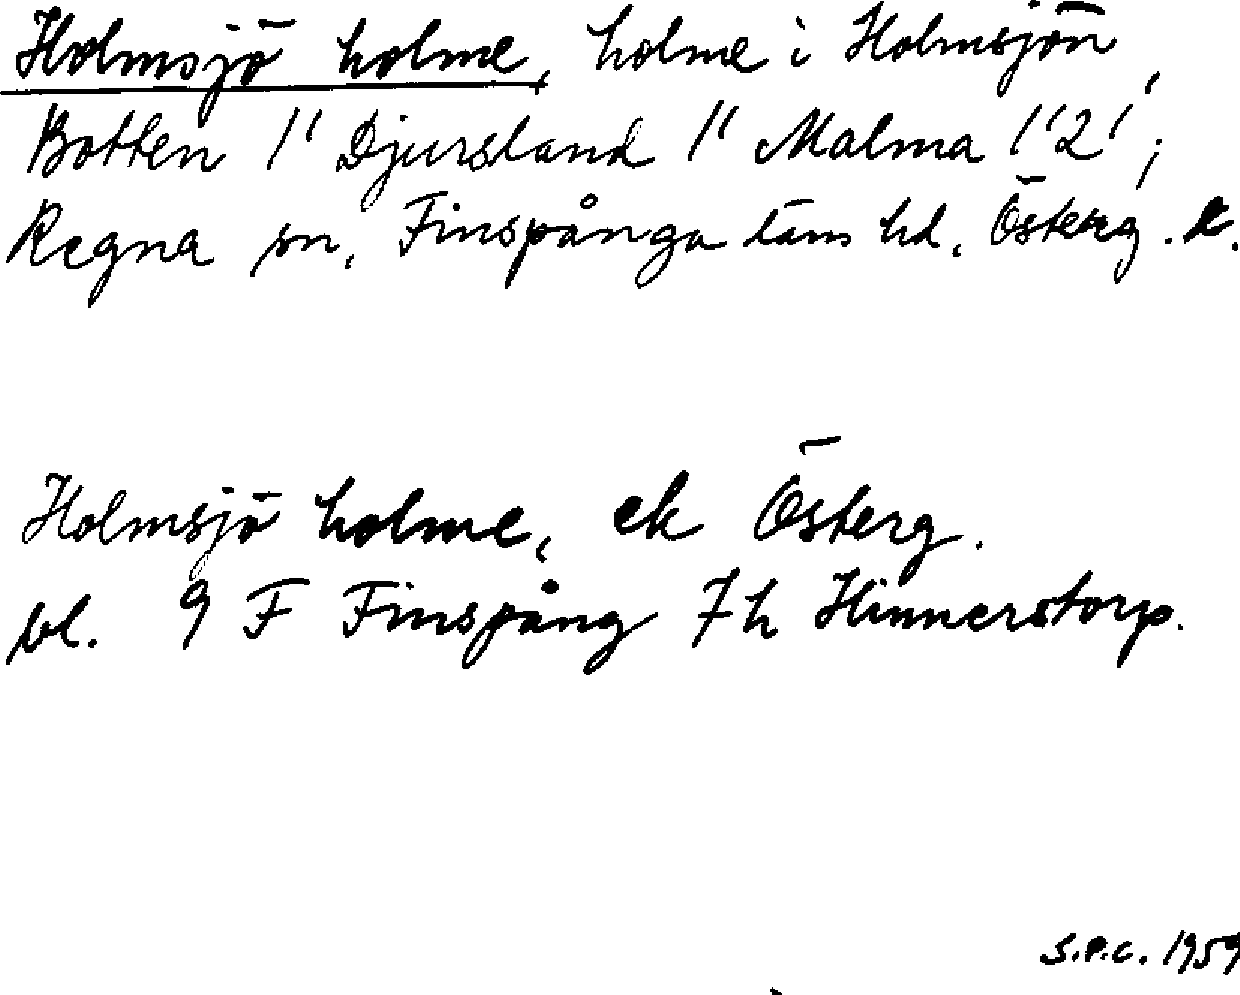 Holmsjö holme, holme i Holmsjön,
Botten 1¹ Djursland 1¹ Malma 1¹2¹;
Regna sn, Finspånga läns hd, Österg. l.
Holmsjö holme, ek Österg.
bl. 9 F Finspång 7h Hinnerstorp.
S.P.C. 1959